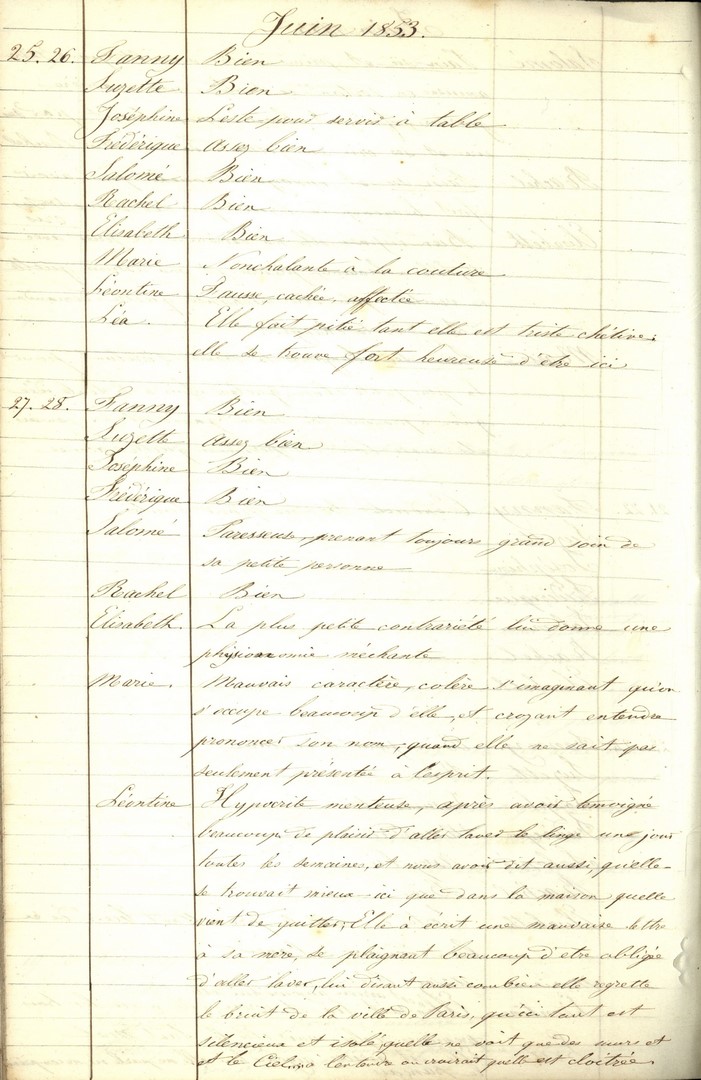 Juin 1853.
25. 26. Fanny Bien
Suzette Bien
Joséphine Leste pour servir à table
Frédérique Assez bien
Salomé Bien
Rachel Bien
Elisabeth Bien
Marie Nonchalante à la couture
Léontine Fausse, cachée, affectée
Léa. Elle fait pitié tant elle est triste chétive;
elle se trouve fort heureuse d'être ici
27. 28. Fanny Bien
Suzette Assez bien
Joséphine Bien
Frédérique Bien
Salomé Paresseuse, prenant toujours grand soin de
sa petite personne
Rachel Bien
Elisabeth La plus petite contrariété lui donne une
physionomie méchante
Marie. Mauvais caractère, colère s'imaginant qu'on
s'occupe beaucoup d'elle, et croyant entendre
prononcer son nom, quand elle ne s'est pas
seulement présentée à l'esprit.
Léontine Hypocrite menteuse, après avoir témoigné
beaucoup de plaisir d'aller laver le linge une jour
toutes les semaines, et nous avoir dit aussi, quelle
se trouvait mieux ici que dans la maison quelle
vient de quitter; Elle à écrit une mauvaise lettre
à sa mère, se plaignant beaucoup d'etre obligée
d'aller laver, lui disant aussi combien elle regrette
le bruit de la ville de Paris, qu'ici tout est
silencieux et isolé, quelle ne voit que des murs et
et le Ciel, à l'entendre on croirait quelle est cloitrée.